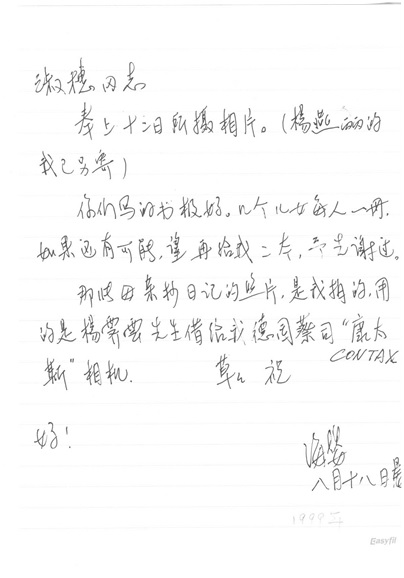 淑穗同志
奉上十二日所摄相片。(楊燕丽的
我已另寄)
你们写的书极好。几个儿女每人一册,
如果还有可能,望再给我二本,予先谢过。
那些母亲抄日记的照片,是我拍的,用
的是楊霽雲先生借给我德国蔡司“康太
CONTAX
斯”相机. 草草祝
好!
海婴
八月十八日晨
1999年
Easyfil